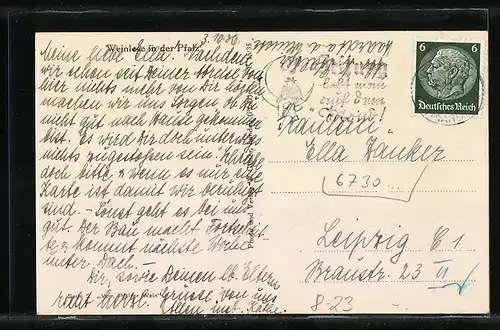 Weinlese in der Pfalz
Meine liebe Ella. Nachdem
wir schon seit Deiner Abreise von
hier nichts mehr von Dir hören
machen wir uns Sorgen ob Du
nicht gut nach Hause gekommen
bist. Es wird Dir doch unterwegs
nichts zugestoßen sein. Schreibe
doch bitte, & wenn es nur eine
Karte ist damit wir beruhigt
sind. – Sonst geht es bei uns
gut. Der Bau macht Fortschrit
te, & kommt nächste Woche
unter Dach. –
Dir, sowie Deinen lb. Eltern
recht herzl. Grüsse von uns
allen insb. Käthe.
Zeitung
6 6
Deutsches Reich
Fräulein
Ella Zanker
6730
Leipzig C 1
Braustr. 23 II
8-23